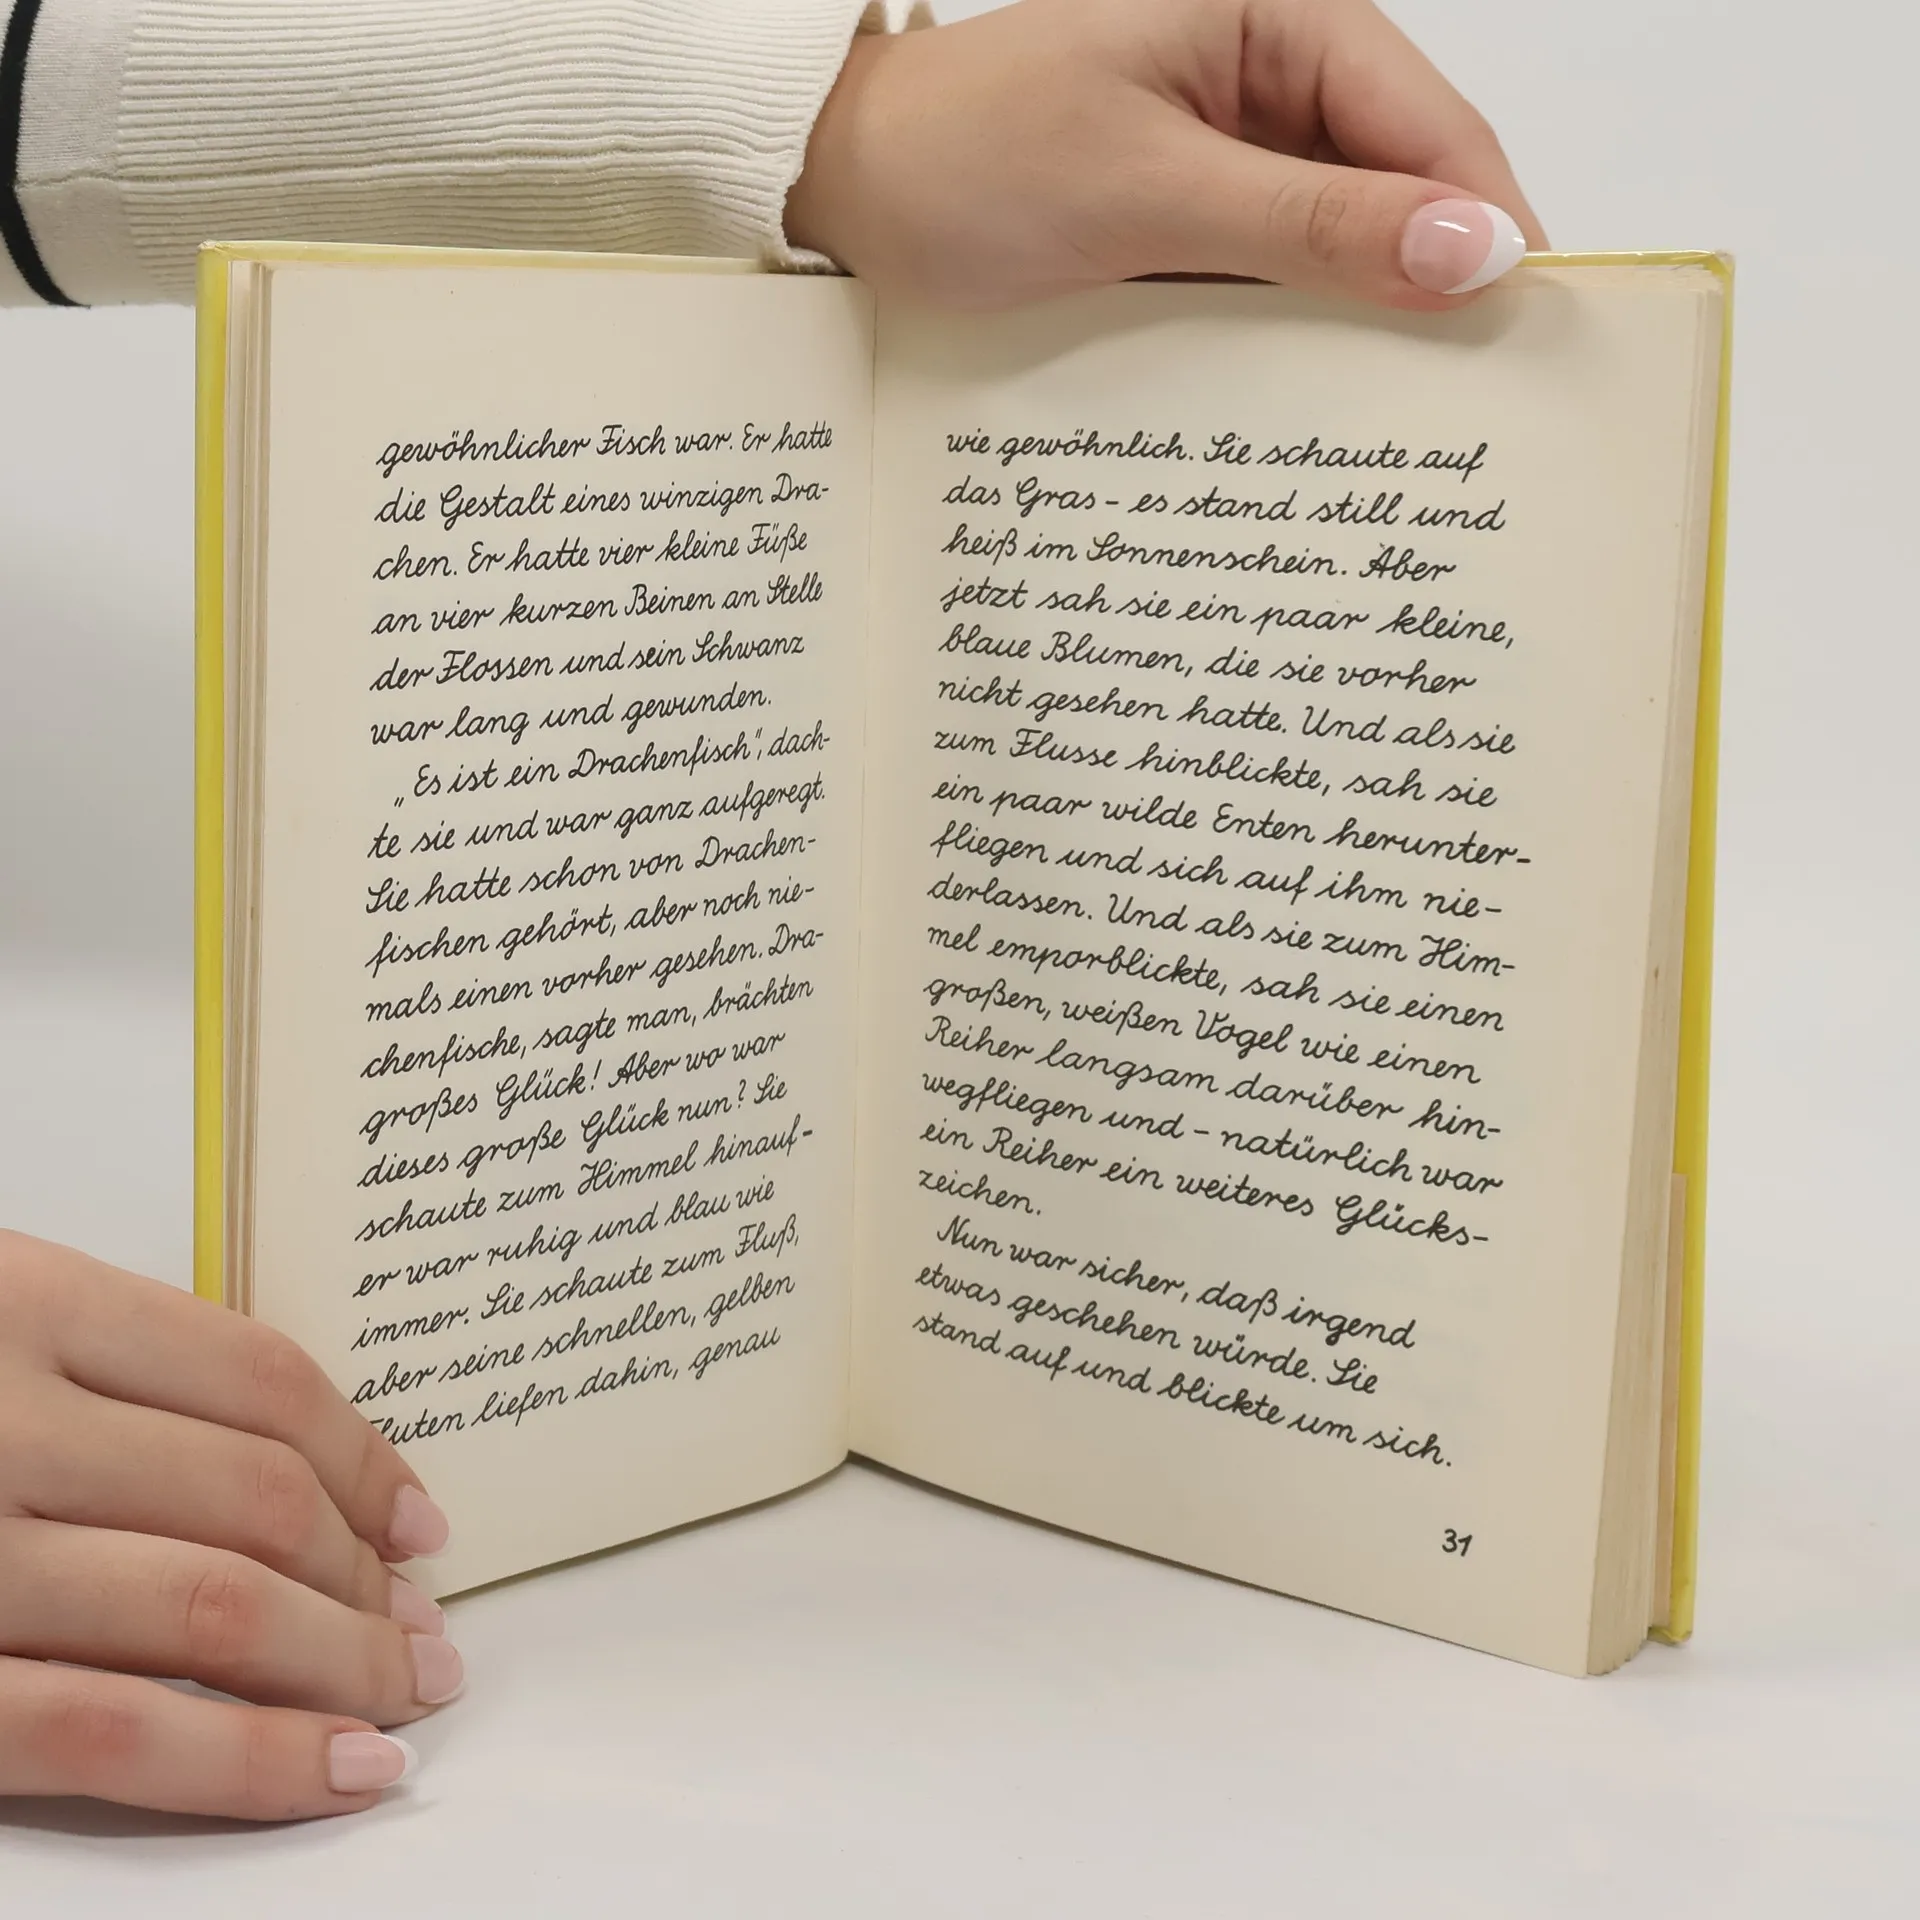 gewöhnlicher Fisch war. Er hatte
die Gestalt eines winzigen Dra-
chen. Er hatte vier kleine Füße
an vier kurzen Beinen an Stelle
der Flossen und sein Schwanz
war lang und gewunden.
„Es ist ein Drachenfisch", dach-
te sie und war ganz aufgeregt.
Sie hatte schon von Drachen-
fischen gehört, aber noch nie-
mals einen vorher gesehen. Dra-
chenfische, sagte man, brächten
großes Glück! Aber wo war
dieses große Glück nun? Sie
schaute zum Himmel hinauf-
er war ruhig und blau wie
immer. Sie schaute zum Fluß,
aber seine schnellen, gelben
Fluten liefen dahin, genau
wie gewöhnlich. Sie schaute auf
das Gras - es stand still und
heiß im Sonnenschein. Aber
jetzt sah sie ein paar kleine,
blaue Blumen, die sie vorher
nicht gesehen hatte. Und als sie
zum Flusse hinblickte, sah sie
ein paar wilde Enten herunter-
fliegen und sich auf ihm nie-
derlassen. Und als sie zum Him-
mel emporblickte, sah sie einen
großen, weißen Vogel wie einen
Reiher langsam darüber hin-
wegfliegen und - natürlich war
ein Reiher ein weiteres Glücks-
zeichen.
Nun war sicher, daß irgend
etwas geschehen würde. Sie
stand auf und blickte um sich.
31